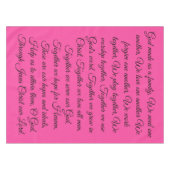 God made us a family. We need one
another. We love one another. We
forgive one another. We work
together. We play together. We
worship together. Together we use
God's word. Together we grow in
Christ. Together we love all men.
Together we serve our God.
Together we hope for Heaven.
These are our hopes and ideals.
Help us to attain them, O God,
Through Jesus Christ our Lord.